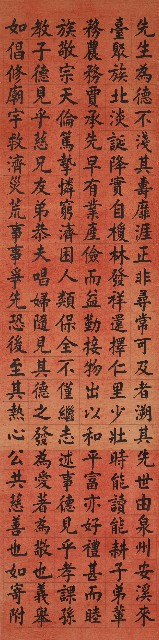 先生為德不淺其壽靡涯正非尋常可及者溯其先世由泉州安溪來
臺聚族北淡誕降實自榎林發祥還擇仁里少壯時能讀能耕子弟輩
務農務賈承先早有業產儉而益勤接物出以和平富亦好禮甚而睦
族敬宗天倫篤摯憐窮濟困人類保全不僅繼志述事德見乎孝課孫
教子德見乎慈兄友弟恭夫唱婦隨見其德之發為愛著為敬也義舉
如倡修廟宇救濟災荒事事爭先恐後至其熱心公共慈善也如寄附